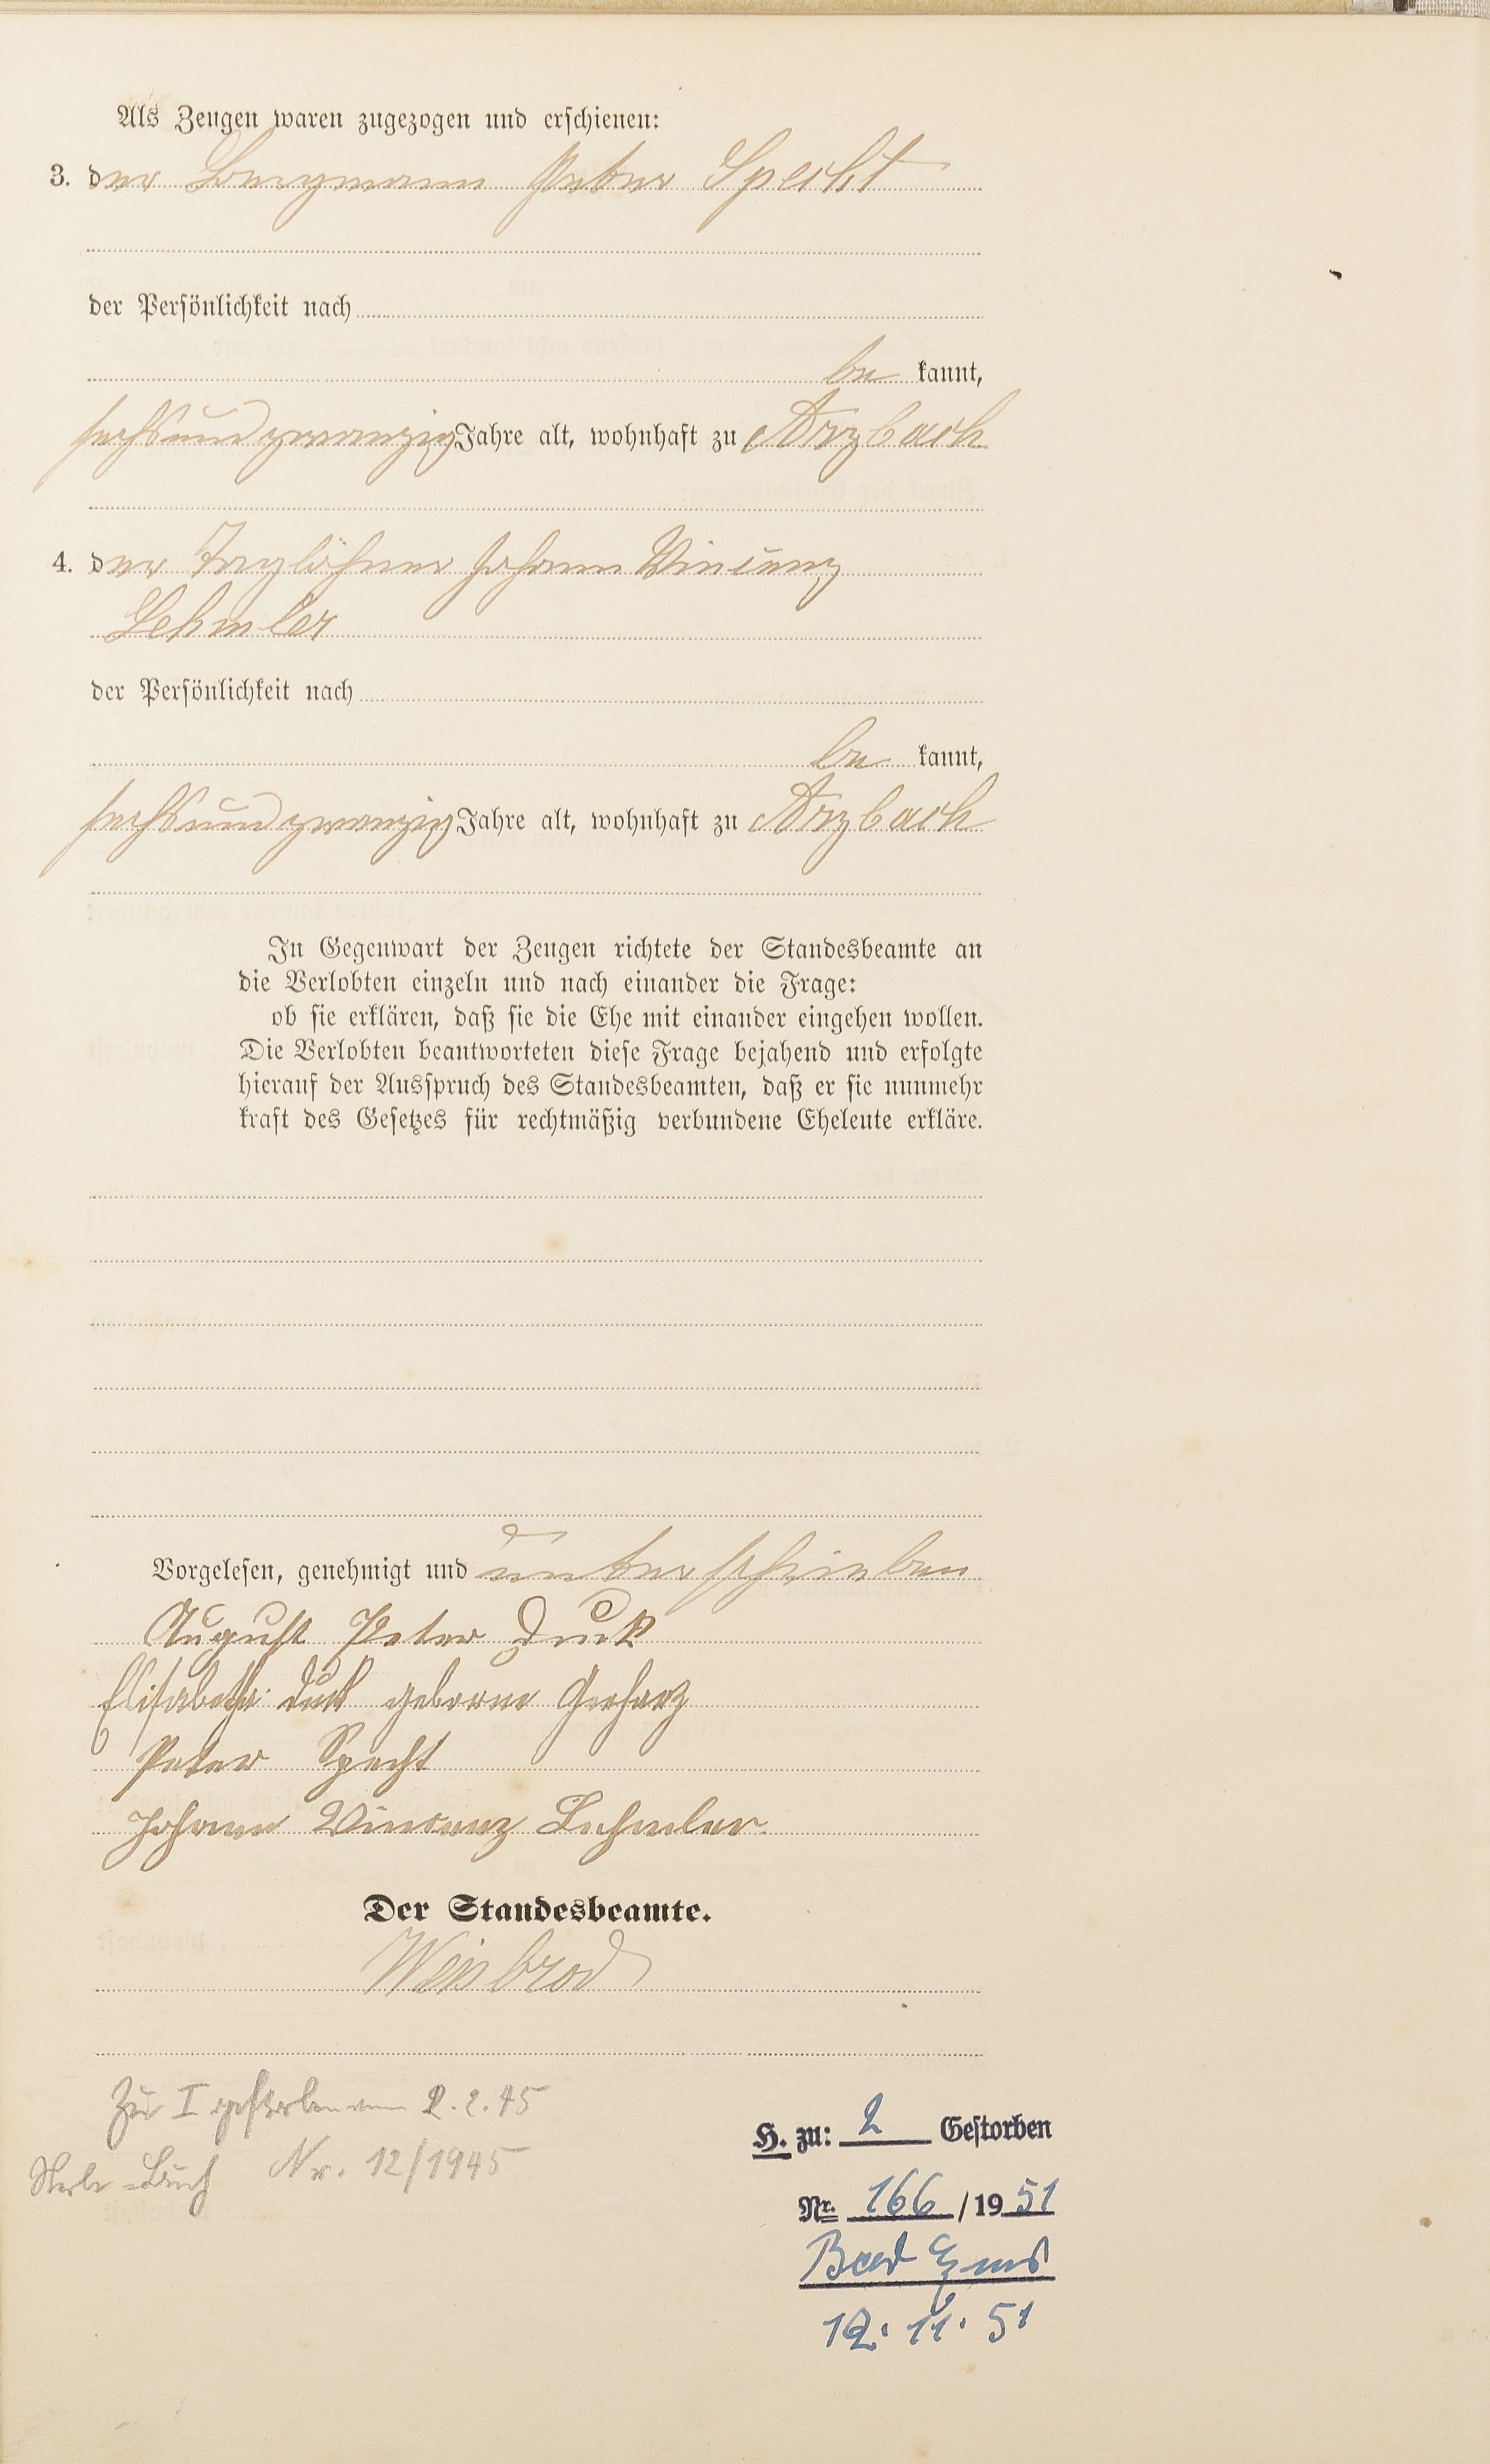 Als Zeugen waren zugezogen und erschienen:
3. der Bergmann Peter Specht
der Persönlichkeit nach
be kannt,
sechsundzwanzig Jahre alt, wohnhaft zu Arzbach
4. der Taglöhner Johann Vincenz
Lehmler
der Persönlichkeit nach
be kannt,
sechsundzwanzig Jahre alt, wohnhaft zu Arzbach
In Gegenwart der Zeugen richtete der Standesbeamte an
die Verlobten einzeln und nach einander die Frage:
ob sie erklären, daß sie die Ehe mit einander eingehen wollen.
Die Verlobten beantworteten diese Frage bejahend und erfolgte
hierauf der Ausspruch des Standesbeamten, daß er sie nunmehr
kraft des Gesetzes für rechtmäßig verbundene Eheleute erkläre.
Vorgelesen, genehmigt und unterschrieben
August Peter Duck
Elisabetha Duck geborne Gerharz
Peter Specht
Johann Vincenz Lehmler
Der Standesbeamte.
Weisbrod
Zu I gestorben am 2.2.45
Sterbe-Buch Nr. 12/1945
H. zu: 2 Gestorben
Nr. 166/1951
Bad Ems
12. 11. 51